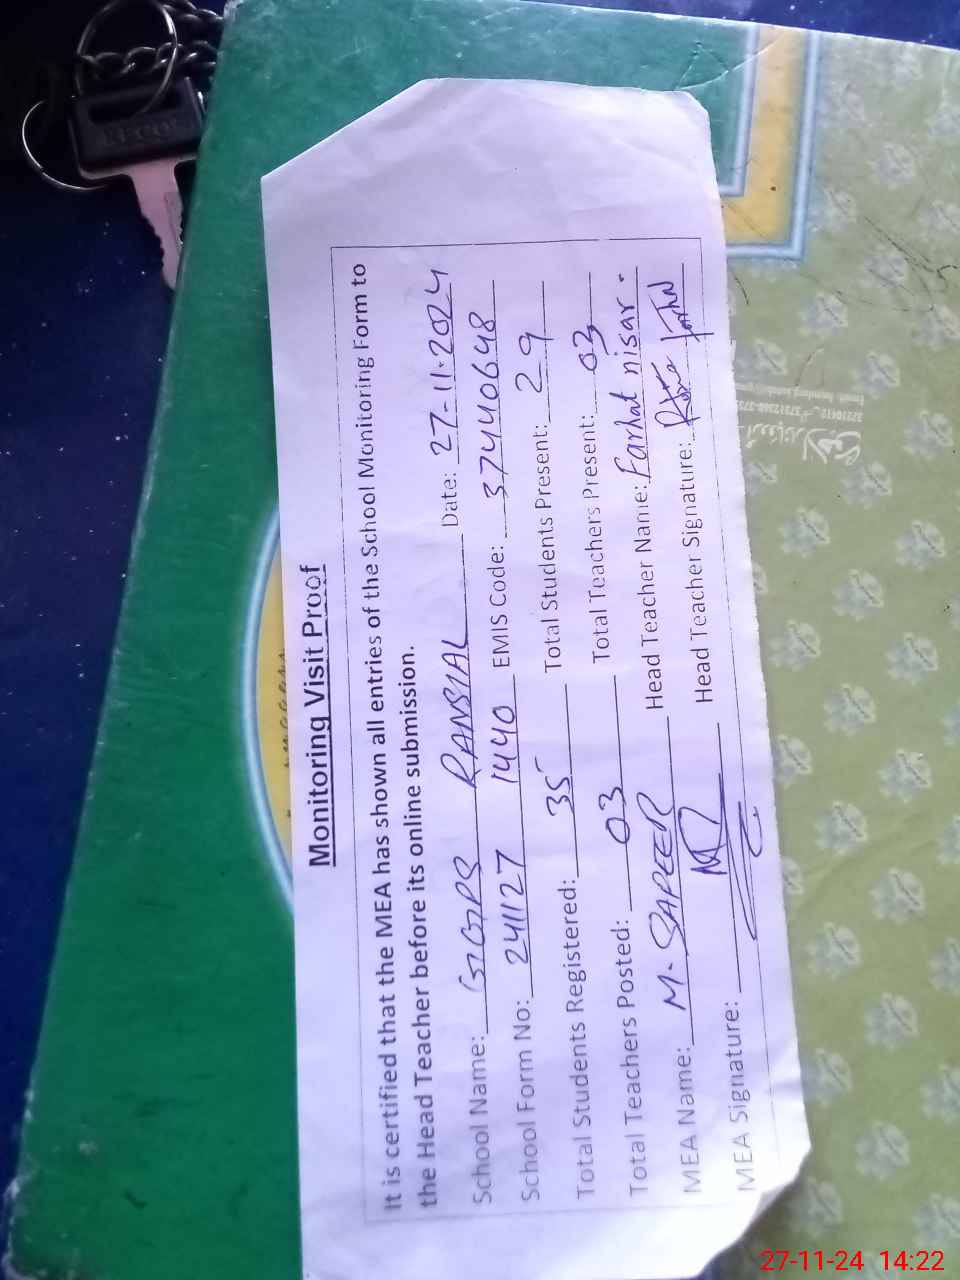 Monitoring Visit Proof
It is certified that the MEA has shown all entries of the School Monitoring Form to
the Head Teacher before its online submission.
School Name: GGPS RANSIAL Date: 27-11-2024
School Form No: 241127 1440 EMIS Code: 37440648
Total Students Registered: 35 Total Students Present: 29
Total Teachers Posted: 03 Total Teachers Present: 03
MEA Name: M. SAPEER Head Teacher Name: Farhat nisar.
MEA Signature: Head Teacher Signature:
27-11-24 14:22